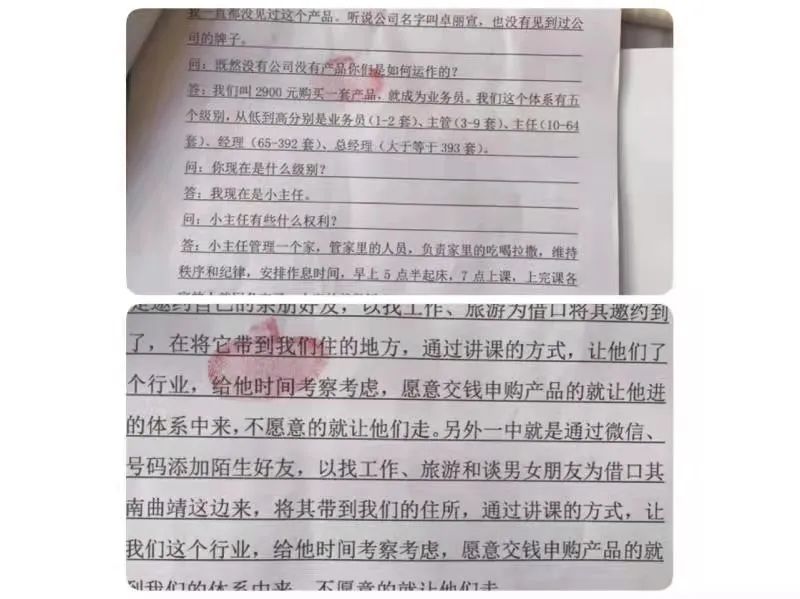 我一直都没见过这个产品。听说公司名字叫卓丽宣,也没有见到过公
司的牌子。
问:既然没有公司没有产品你们是如何运作的?
答:我们叫 2900 元购买一套产品,就成为业务员。我们这个体系有五
个级别,从低到高分别是业务员(1-2 套)、主管(3-9 套)、主任(10-64
套)、经理(65-392 套)、总经理(大于等于 393 套)。
问:你现在是什么级别?
答:我现在是小主任。
问:小主任有些什么权利?
答:小主任管理一个家,管家里的人员,负责家里的吃喝拉撒,维持
秩序和纪律,安排作息时间,早上 5 点半起床,7 点上课,上完课各
是邀约自己的亲朋好友,以找工作、旅游为借口将其邀约到
了,在将它带到我们住的地方,通过讲课的方式,让他们了
个行业,给他时间考察考虑,愿意交钱申购产品的就让他进
的体系中来,不愿意的就让他们走。另外一中就是通过微信、
号码添加陌生好友,以找工作、旅游和谈男女朋友为借口其
南曲靖这边来,将其带到我们的住所,通过讲课的方式,让
我们这个行业,给他时间考察考虑,愿意交钱申购产品的就
到我们的体系中来,不愿意的就让他们走